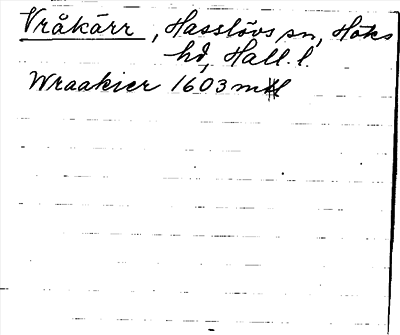 Vråkärr, Hasslövs sn, Höks
hd, Hall. l.
Wraakier 1603